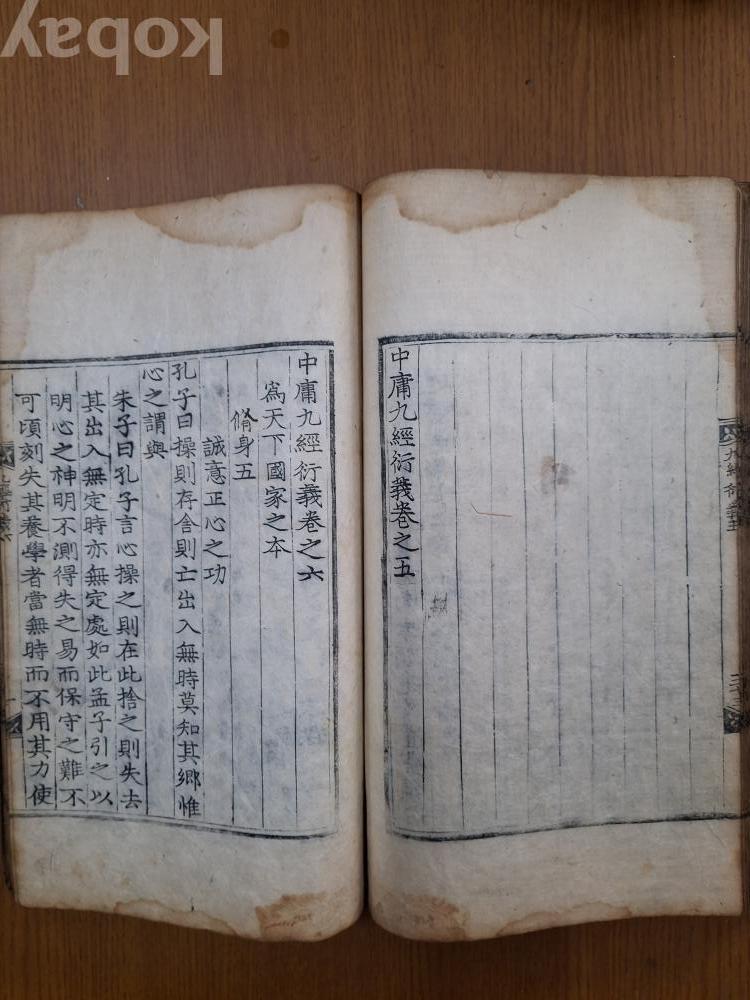 kobay
中庸九經衍義卷之五
中庸九經衍義卷之六
爲天下國家之本
脩身五
誠意正心之功
孔子曰操則存舍則亡出入無時莫知其鄕惟
心之謂與
朱子曰孔子言心操之則在此捨之則失去
其出入無定時亦無定處如此孟子引之以
明心之神明不測得失之易而保守之難不
可頃刻失其養學者當無時而不用其力使
九經衍義五